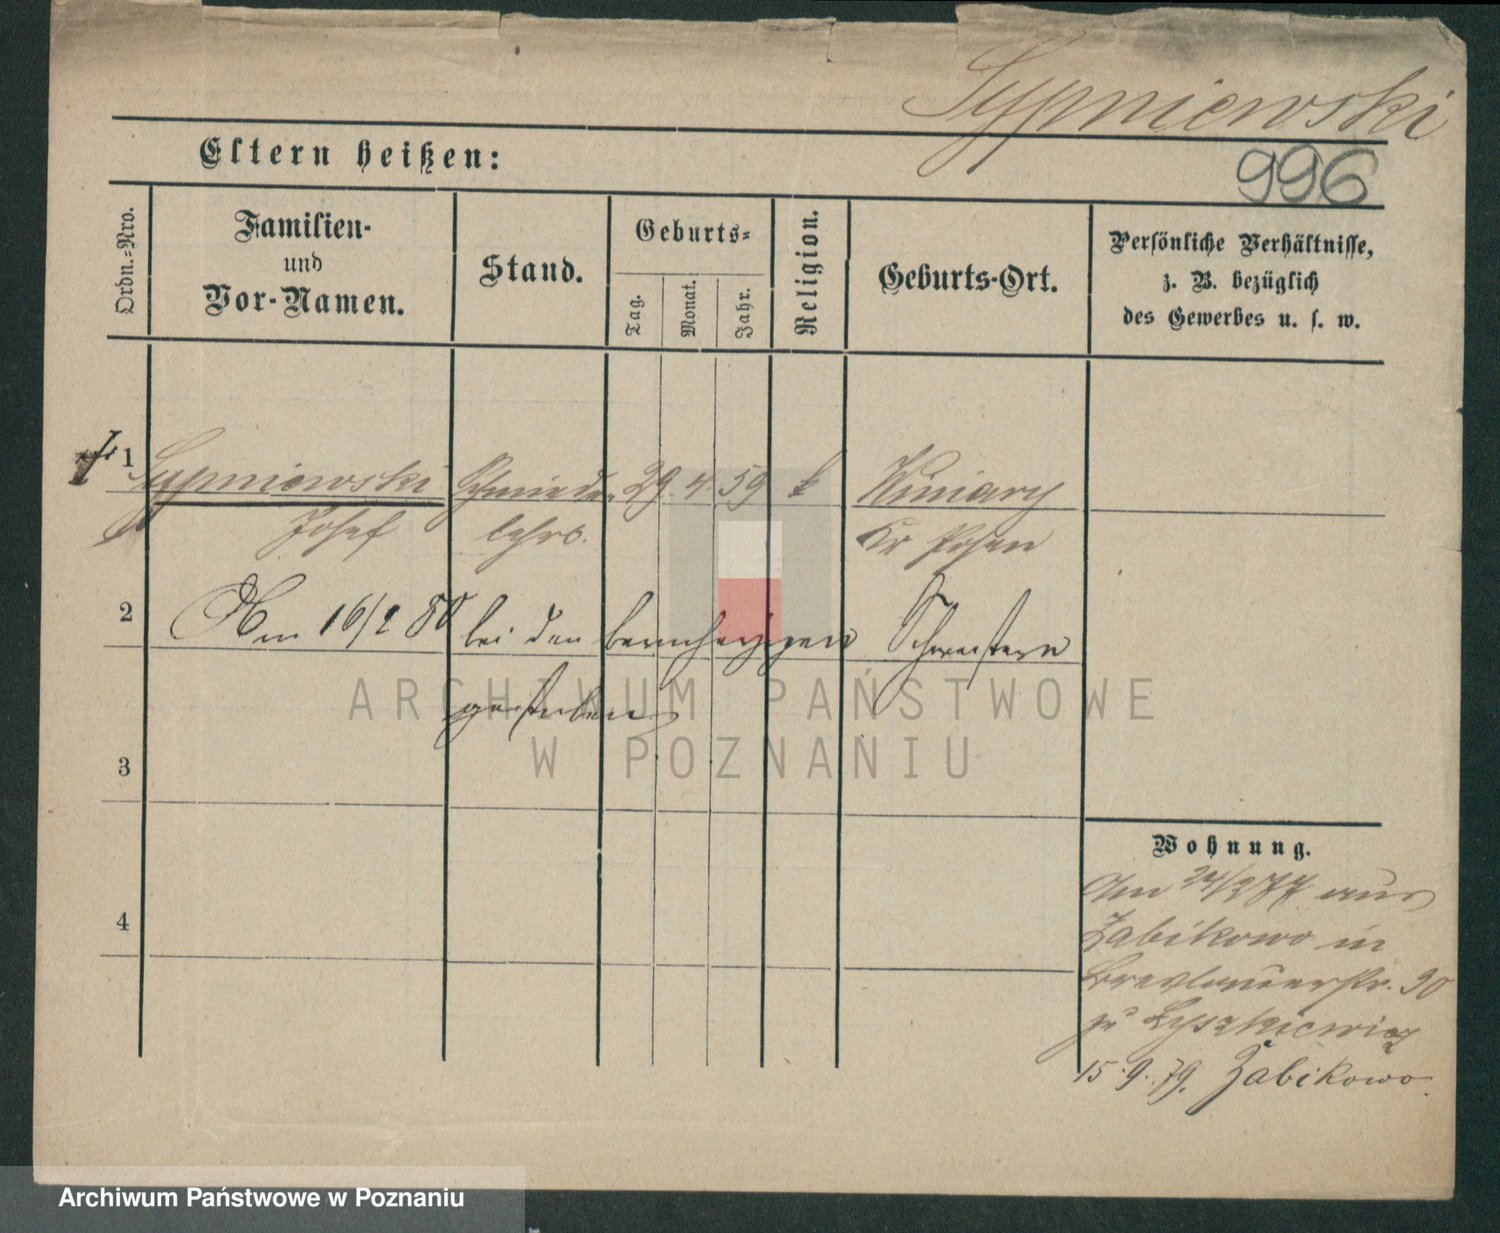 Sypniewski
996
Eltern heißen:
Ordn.-Nro.
Familien-
und
Vor-Namen.
Stand.
Geburts-
Tag.
Monat.
Jahr.
Religion.
Geburts-Ort.
Persönliche Verhältnisse,
z. B. bezüglich
des Gewerbes u. s. w.
1 Sypniewski Schmiede 29. 4. 59 k Winiary
Josef lehrl. Kr Posen
2 Am 16/2 80 bei den barmherzigen Schwestern
gestorben
3
4
Wohnung.
Am 24/2 77 aus
Zabikowo in
Breslauerstr. 30
zu Lyszkiewicz
15.9.79. Zabikowo.
ARCHIWUM PAŃSTWOWE
W POZNANIU
Archiwum Państwowe w Poznaniu